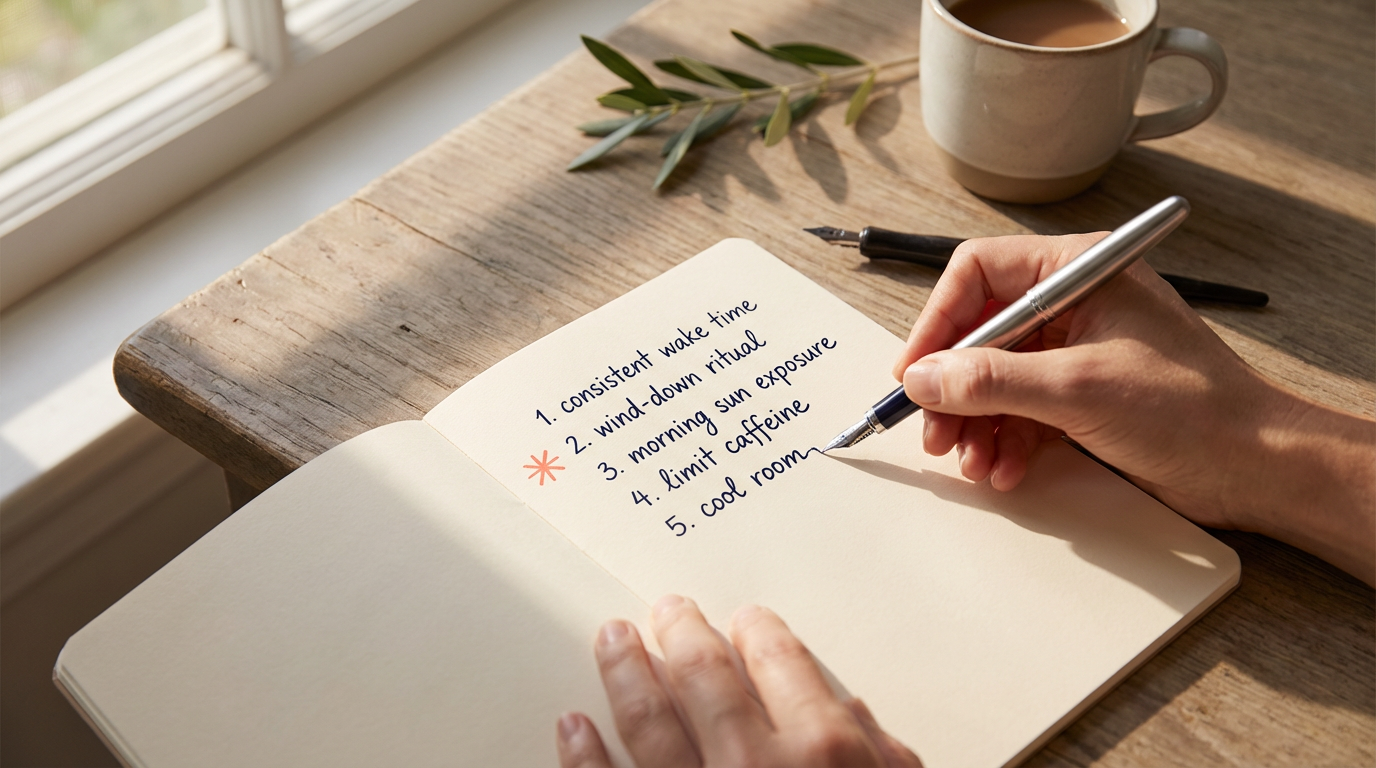 1. consistent wake time
2. wind-down ritual
3. morning sun exposure
4. limit caffeine
5. cool room